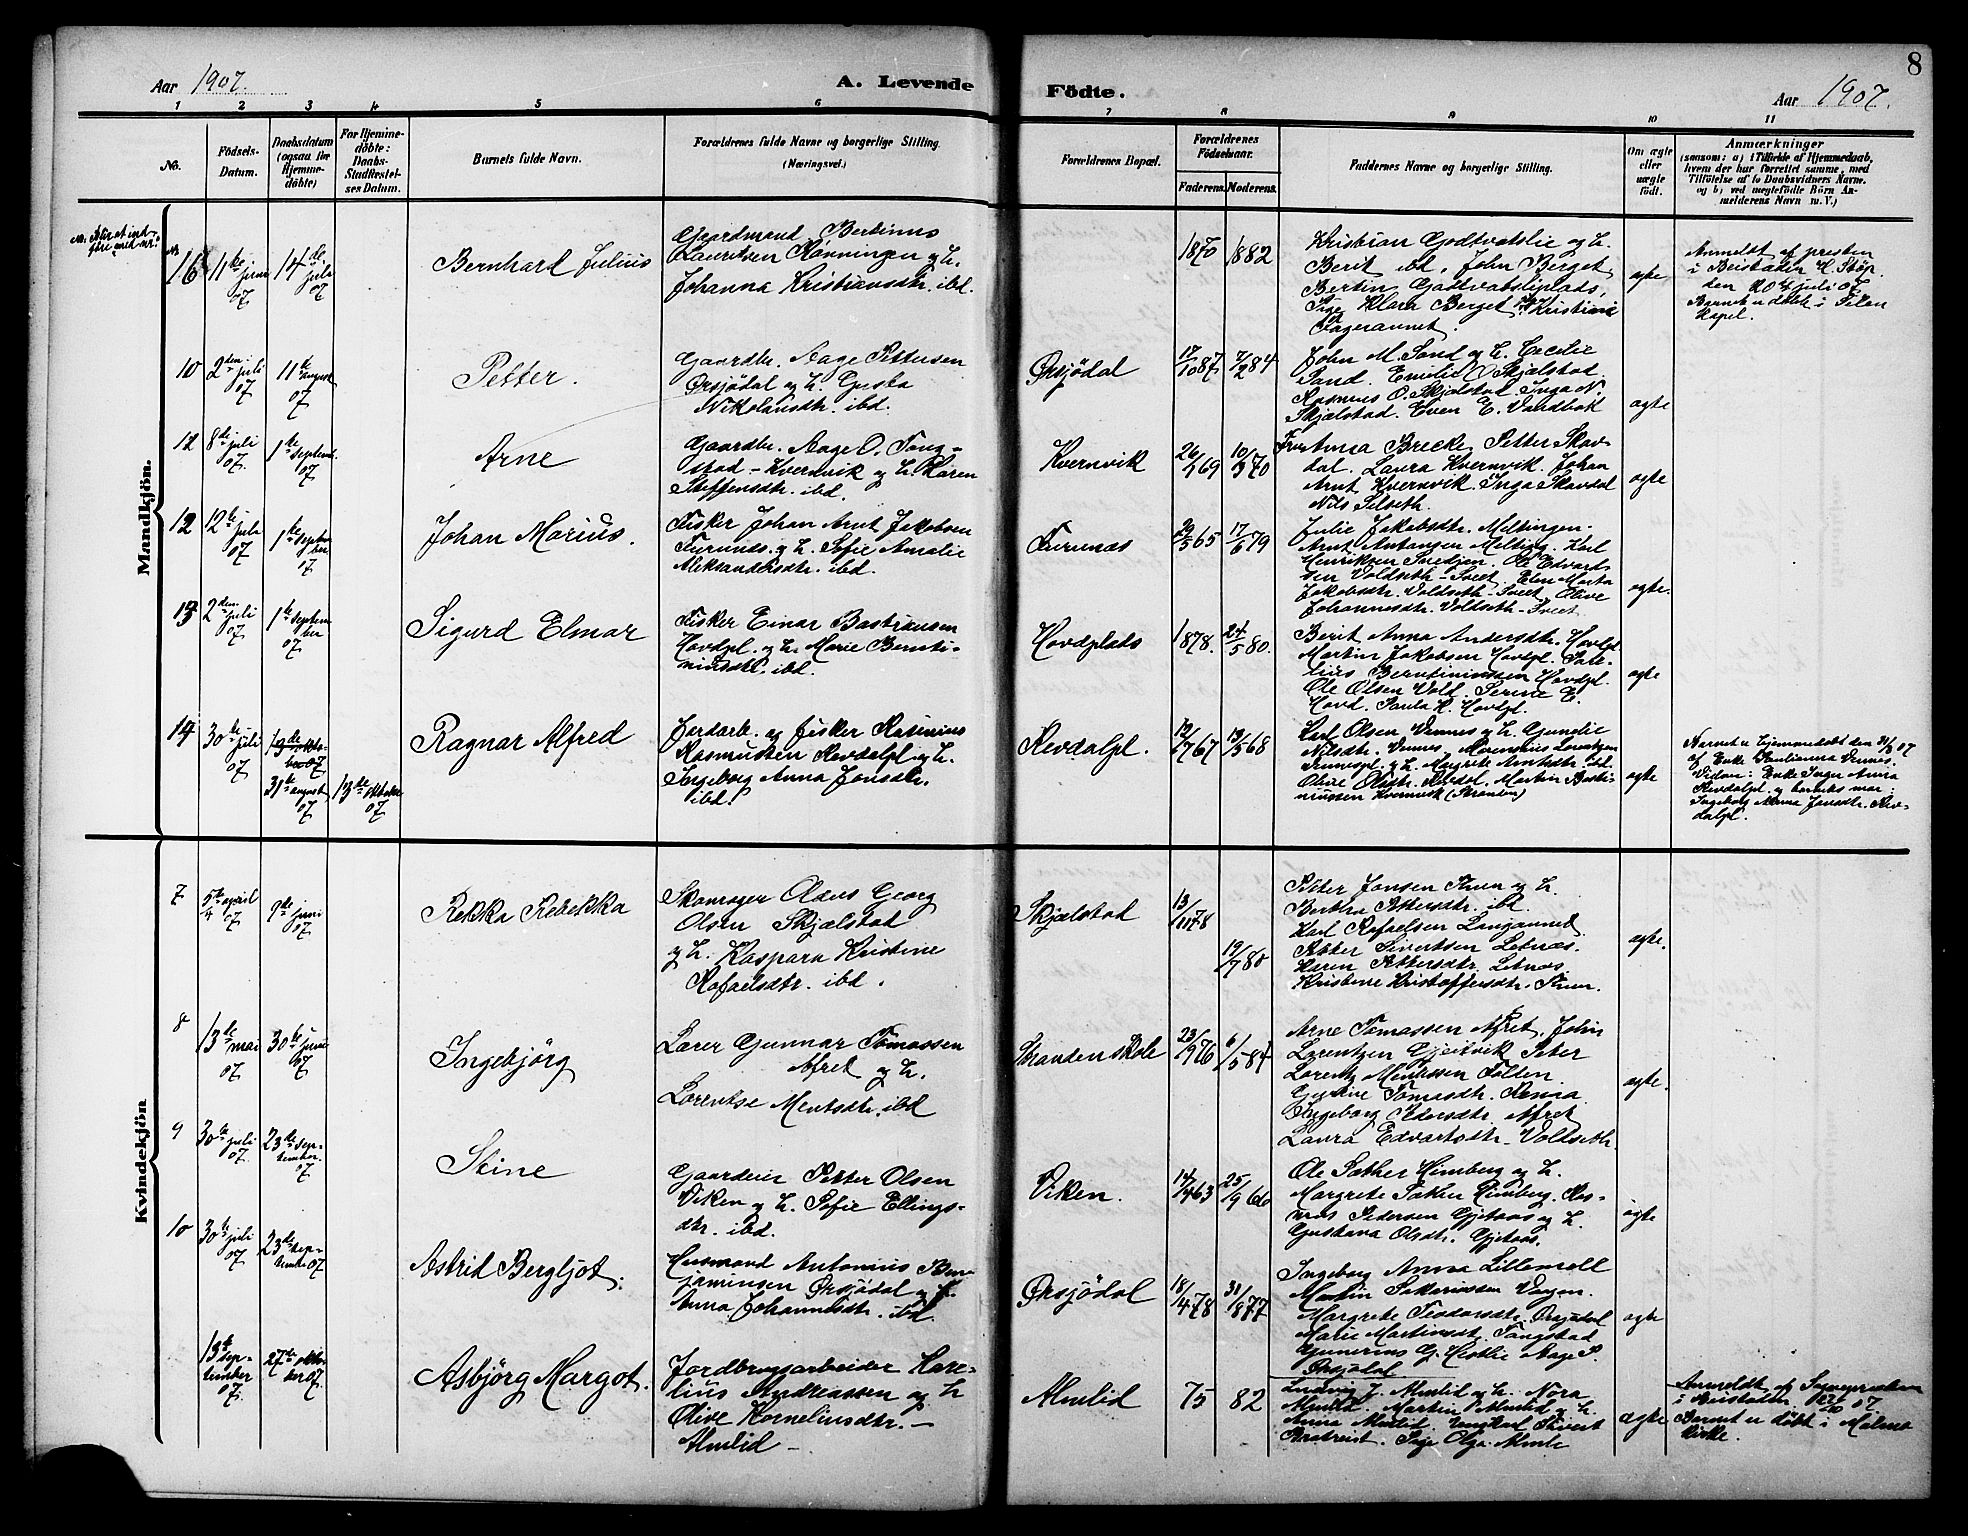 Aar 1907.
A. Levende Födte.
Aar 1907.
8
1 2 3 4 5 6 7 8 9 10 11
No.
Födsels-Datum.
Daabsdatum (ogsaa for Hjemmedöbte)
For Hjemmedöbte: Daabs-Stadfæstelses Datum.
Barnets fulde Navn.
Forældrenes fulde Navne og borgerlige Stilling. (Næringsvei.)
Forældrenes Bopæl.
Forældrenes Födselsaar.
Faderens. Moderens.
Faddernes Navne og borgerlige Stilling.
Om ægte eller uægte födt.
Anmærkninger
(saasom: a) i Tilfælde af Hjemmedaab, hvem der har forrettet samme, med Tilföielse af to Daabsvidners Navne. og b) ved uegtefödte Börn Anmelderens Navn m. V.)
Mandkjön.
16
11te juni 07
14de juli 07
Bernhard Julius
Gaardmand Bertinus
Lauritsen Rønningen og h.
Johanna Kristiansdtr. ibd.
1870 1882
Kristian Godtvatslie og h.
Berit ibd. John Berget
Bertin Godtvatslieplads,
Pige Klara Berget Kristine
Fagerannet.
ægte
Anmeldt af presten
i Beistaden H. Støp
den 20 juli 07
Barnet er døbt i
kapel.
10
2den juli 07
11te august 07
Petter.
Gaardbr. Aage Pettersen
Ørsjödal og h. Gusta
Nikolausdtr. ibd.
Ørsjödal
17/10 87 7/2 84
John M. Sand og h. Cecilie
Sand. Emelie O Skjelstad
Rasmus O. Skjelstad Inga N.
Skjelstad. Even E. Vandbak
ægte
12
8de juli 07
1ste septemb. 07
Arne
Gaardbr. Aage O. Tang-
stad - Kvernvik og h. Karen
Steffensdtr. ibd.
Kvernvik
69 70
Fru Anna Brecke Petter Skav-
dal. Laura Kvernvik. Johan
Arnt Kvernvik. Inga Skavdal
Nils Selseth.
ægte
12
12te juli 07
1ste september 07
Johan Marius.
Fisker Johan Arnt Jakobsen
Furunes. og h. Sofie Amalie
Aleksandersdtr. ibd.
Furunæs
65 17/6 79
Julie Jakobsdtr. Meltingen.
Arnt Antonsen Melting. Karl
Henriksen Svedjen. Ole Edvard-
sen Voldseth - Sveet. Elen Marta
Jakobsdtr. Voldseth - Sveet Olive
Johannesdtr. Voldseth - Sveet
ægte.
13
2den juli 07
1ste september 07
Sigurd Elmar
Fisker Einar Bastiansen
Hovdpl. og h. Marie Bernti-
minsdtr. ibd.
Hovdplads
1878. 24/5 80.
Berit Anna Andersdtr. Hovdpl.
Martin Jakobsen Hovdpl.
Berntiminsen Hovdpl.
Ole Olsen Vold. Serine E.
Hovd. Paula K. Hovdpl.
ægte
14
30te juli 07
31te august 07
13de oktober 07
Ragnar Alfred
Jordarb. og fisker Retinius
Rasmussen Revdalpl og h.
Ingeborg Anna Jonsdtr.
ibd.
Revdalpl.
67 68
Karl Olsen Vennes og h. Gunelie
Nilsdtr. Vennes. Lorentsen
og h. Margrete ibd.
Olive Olsdtr. Revdal. Martin Basti-
niussen Kvernvik (Stranden)
ægte
Barnet er hjemmedøbt den 31/8 07
af Enke Pauliana Vennes.
Vidner: Enke Inger Anna
Revdalpl. og barnets mor:
Ingeborg Anna Jonsdtr. Rev-
dalpl.
Kvindekjön
7
5te april 07
9de juni 07
Rekka Rebekka
Skomager Olaus Georg
Olsen Skjælstad
og h. Kaspara Kristine
Rafaelsdtr. ibd.
Skjælstad
13/11 78
19/7 80
Peter Jonsen Tuun og h.
Bertha Pettersdtr. ibd.
Karl Rafaelsen Langannet
Petter Sivertsen Letnes.
Karen Pettersdtr. Letnæs.
Kristine Kristoffersdtr. Tuun.
ægte.
8
13de mai 07
30te juni 07
Ingebjörg
Lærer Gunnar Tomassen
Afret og h.
Lorentse Mentsdtr. ibd
Stranden skole
23/9 76 6/5 84
Arne Tomassen Afret. John
Lorentzen Gjeitvik Peter
Lorentz Mentssen Følten
Gustave Tomasdtr. Renna
Ingeborg Pedersdtr. Afret
Laura Edvartsdtr. Voldseth.
ægte.
9
30te juli 07.
23de september. 07
Stine
Gaardeier Petter Olsen
Viken og h. Sofie Ellings-
dtr. ibd.
Viken.
14/4 63 25/9 66
Ole Sakker Himberg og h.
Margrete Sakker Himberg. Ras-
mus Pedersen Gjetaas og h.
Gustava Olsdtr. Gjetaas.
ægte
10
30te juli 07
23de september 07
Astrid Bergljot.
Husmand Antonius Ben-
jaminsen Ørsjödal og h.
Anna Johannesdtr. ibd.
Ørsjödal
18/4 78 31/8 77
Ingeborg Anna Lillemoll
Martin Sakariassen Vangen.
Margrete Teodorsdtr. Ørsjødal
Marie Martinsdtr. Tangstad
Gunerius G. Hestlie Aage P.
Ørsjödal
ægte
13de september 07.
27de oktober 07.
Asbjörg Margot.
Jordbrugsarbeider Kare-
lius Andreassen og h
Olive Korneliusdtr. -
Almlid -
Almlid
75 82
Ludvig J. Almlid og h. Nora
Almlid. Martin Almlid og h.
Anna Almlid. Ungkarl Sivert
Bratreist. Pige Olga Almli
ægte
Anmeldt af Sognepresten
i Beistaden 22/10 07.
Barnet er døbt i Malmo
kirke.